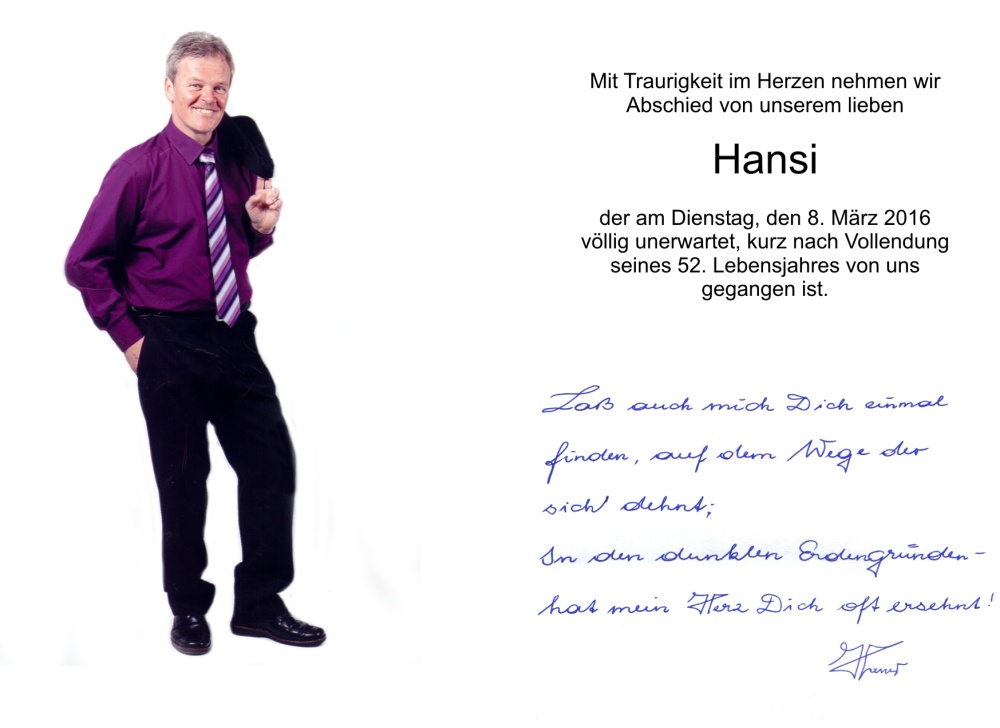 Mit Traurigkeit im Herzen nehmen wir
Abschied von unserem lieben
Hansi
der am Dienstag, den 8. März 2016
völlig unerwartet, kurz nach Vollendung
seines 52. Lebensjahres von uns
gegangen ist.
Laß auch mich Dich einmal
finden, auf dem Wege der
sich dehnt;
In den dunklen Erdengründen-
hat mein Herz Dich oft ersehnt!